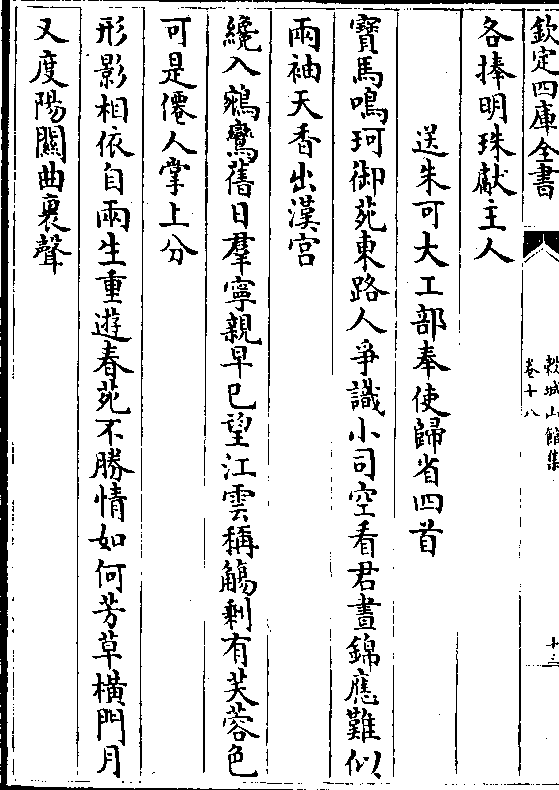 欽定四庫全書
穀城山館集
卷十八
十三
各捧明珠獻主人
送朱可大工部奉使歸省四首
寶馬鳴珂御苑東路人爭識小司空看君晝錦應難似
兩袖天香出漢宮
纔入鵷鸞舊日羣寧親早已望江雲稱觴剩有芙蓉色
可是僊人掌上分
形影相依自兩生重遊春苑不勝情如何芳草橫門月
又度陽關曲裏聲